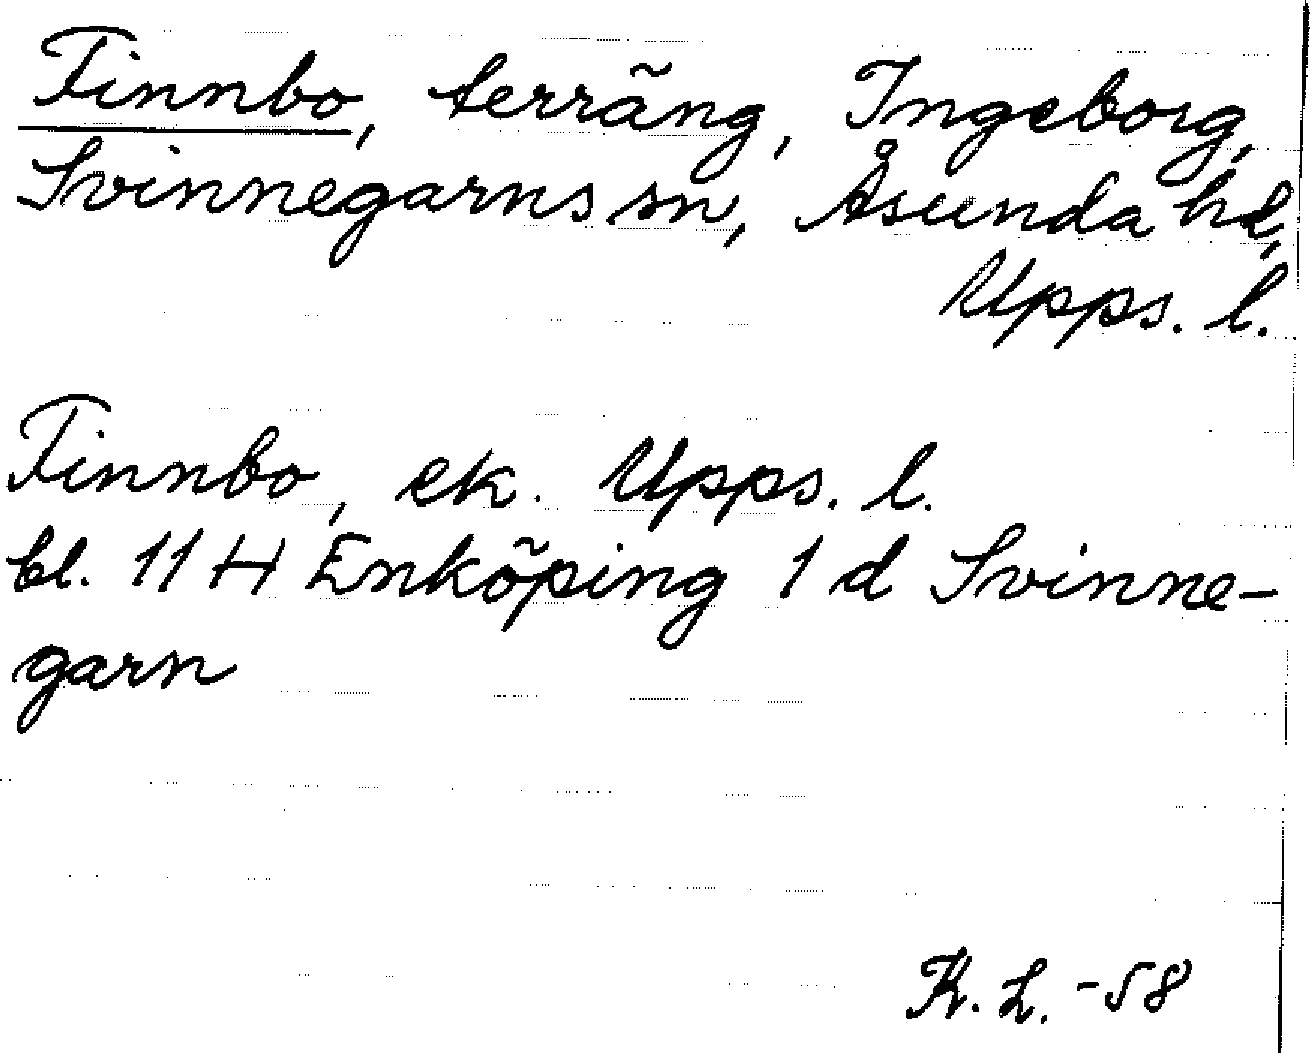 Finnbo, terräng, Ingeborg,
Svinnegarns sn, Åsunda hd,
Upps. l.
Finnbo, ek. Upps. l.
bl. 11 H Enköping 1 d Svinne-
garn
K. L. -58